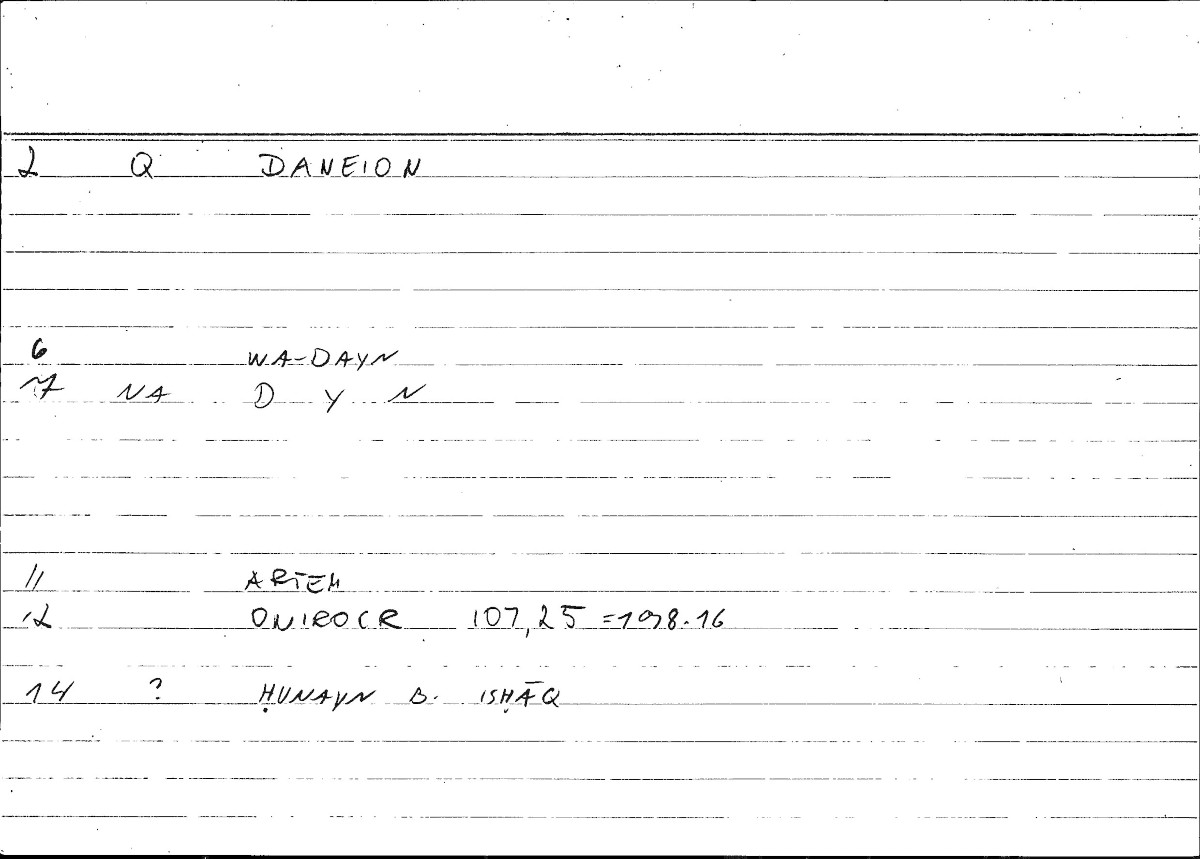 2 Q DANEION
6 WA-DAYN
7 NA D Y N
11 ARTEM
12 ONIROCR 107,25 = 198.16
14 ? ḤUNAYN B. ISḤĀQ